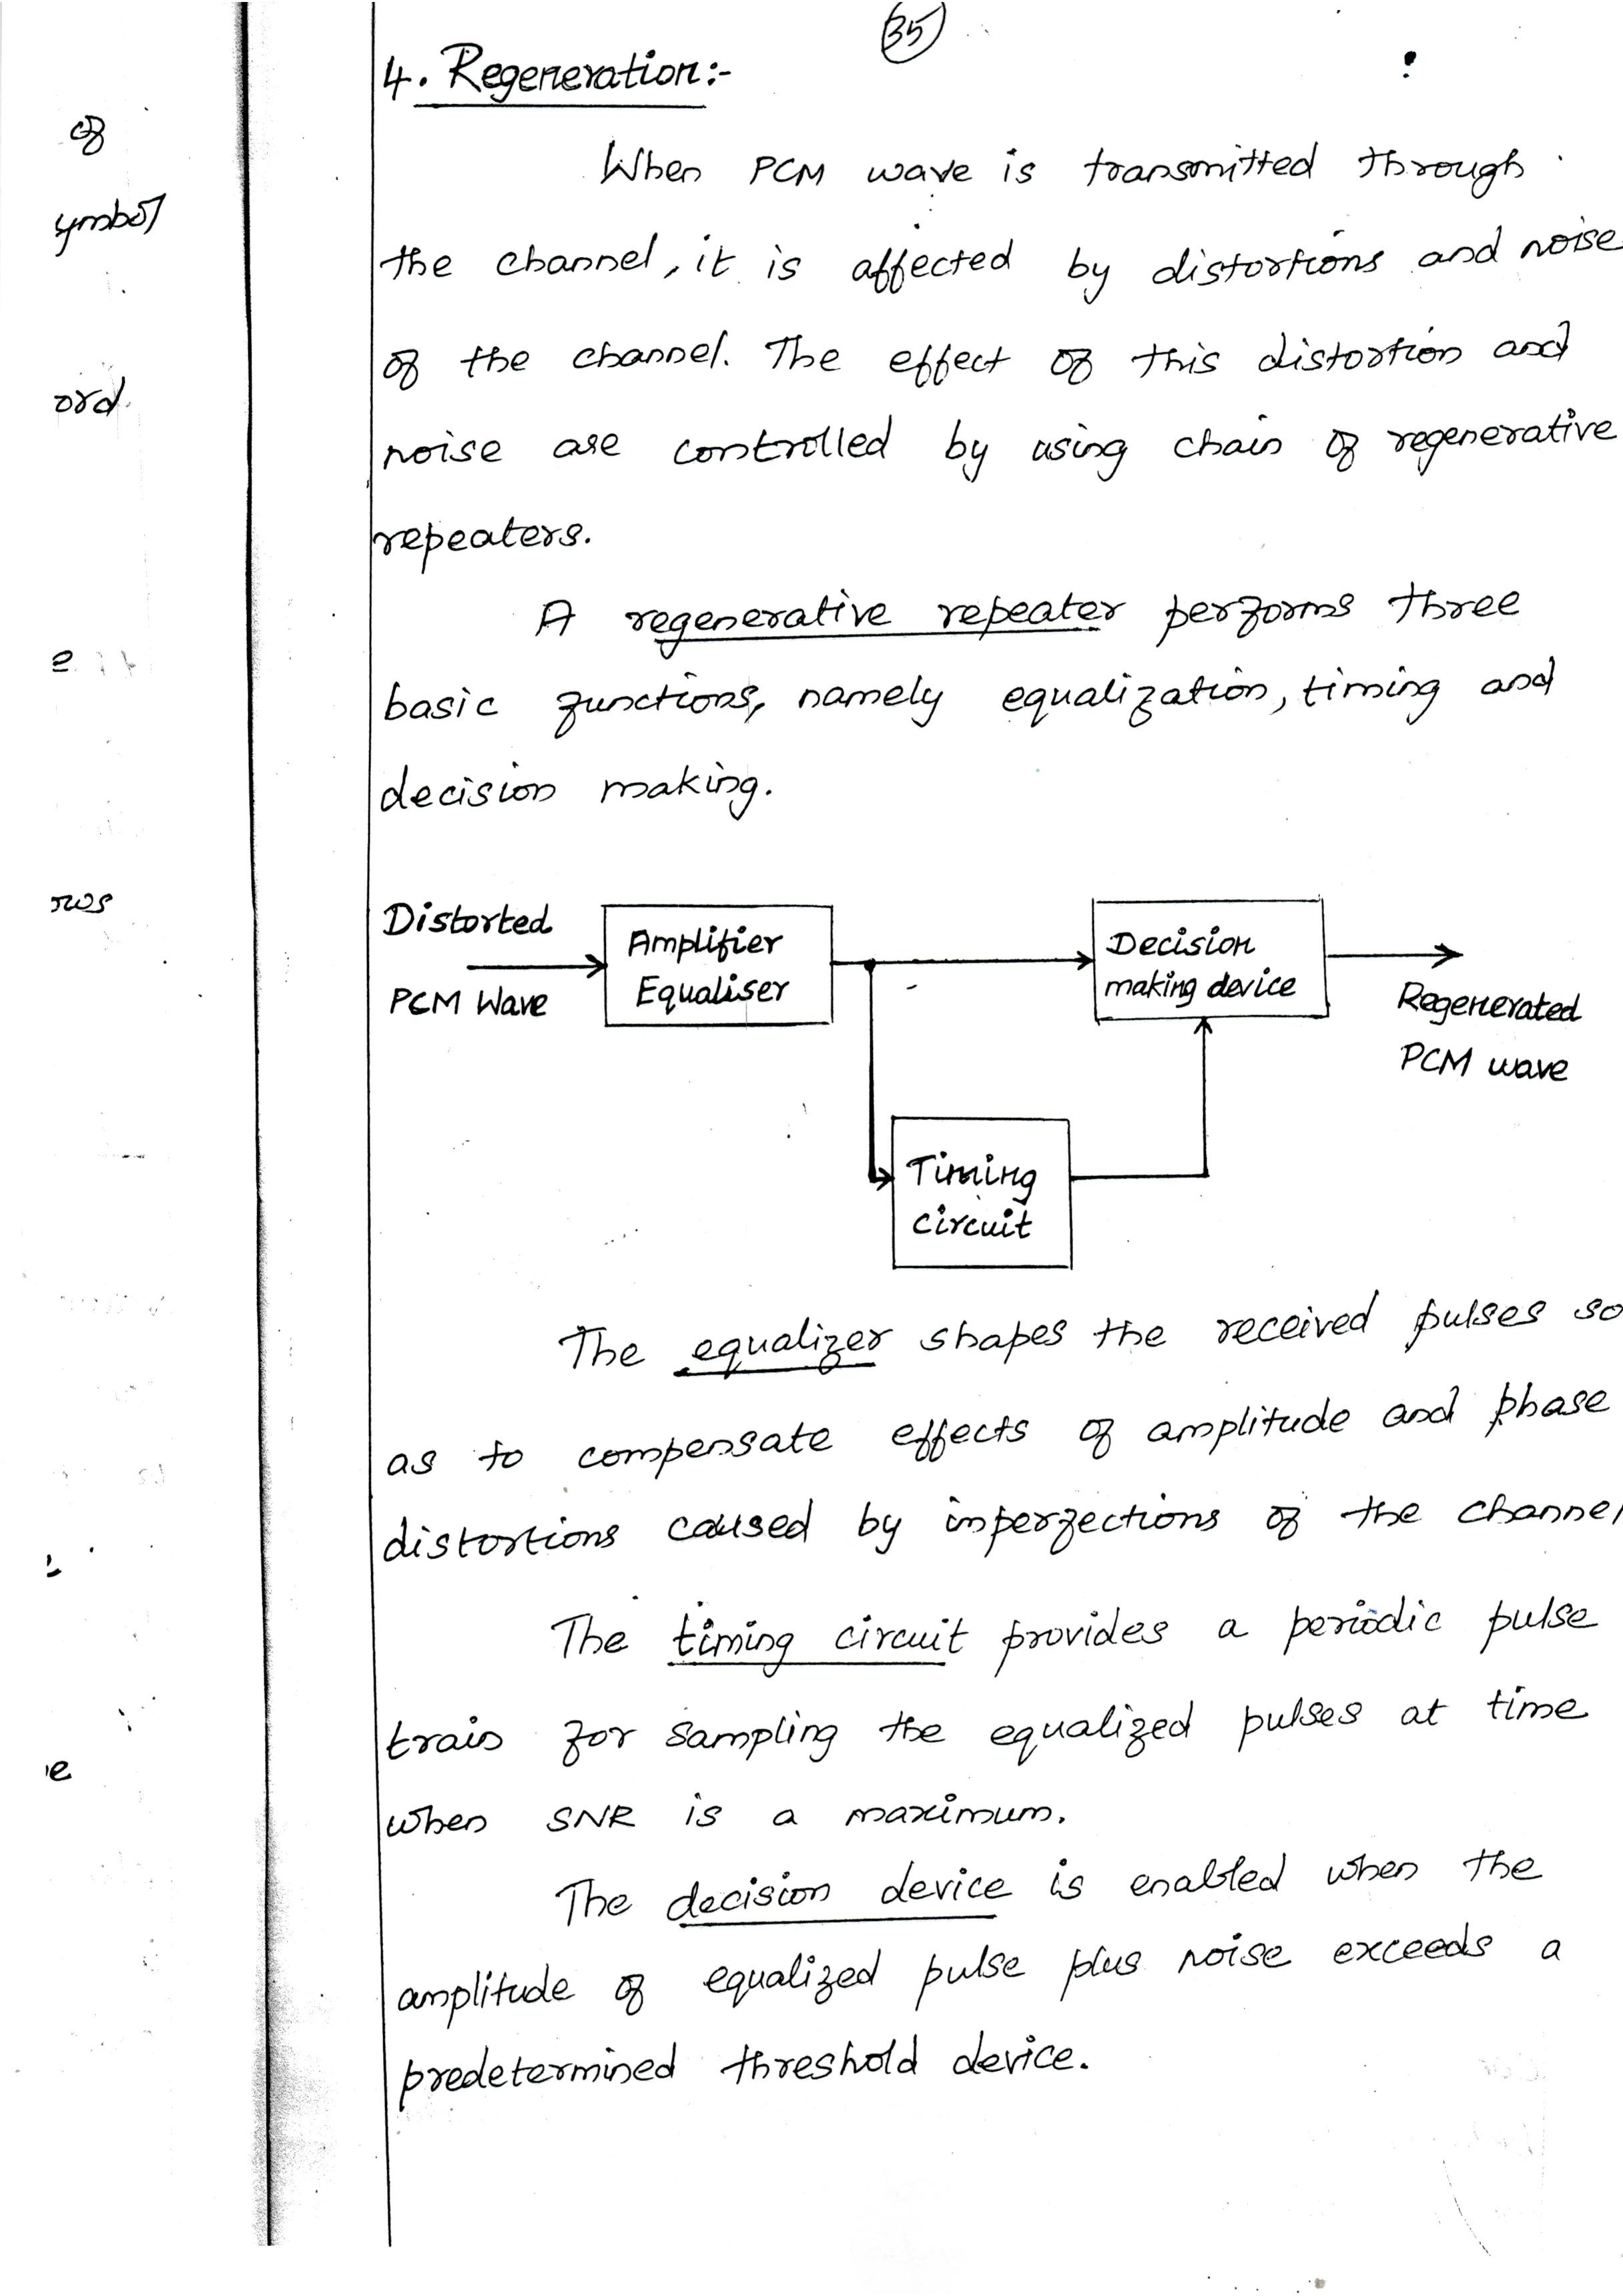 35
4. Regeneration:-
When PCM wave is transmitted through
the channel, it is affected by distortions and noise
of the channel. The effect of this distortion and
noise are controlled by using chain of regenerative
repeaters.
A regenerative repeater performs three
basic functions, namely equalization, timing and
decision making.
Distorted
PCM Wave
Amplifier
Equaliser
Decision
making device
Regenerated
PCM wave
Timing
circuit
The equalizer shapes the received pulses so
as to compensate effects of amplitude and phase
distortions caused by imperfections of the channel
The timing circuit provides a periodic pulse
train for sampling the equalized pulses at time
when SNR is a maximum.
The decision device is enabled when the
amplitude of equalized pulse plus noise exceeds a
predetermined threshold device.
of
ymbol
ord.